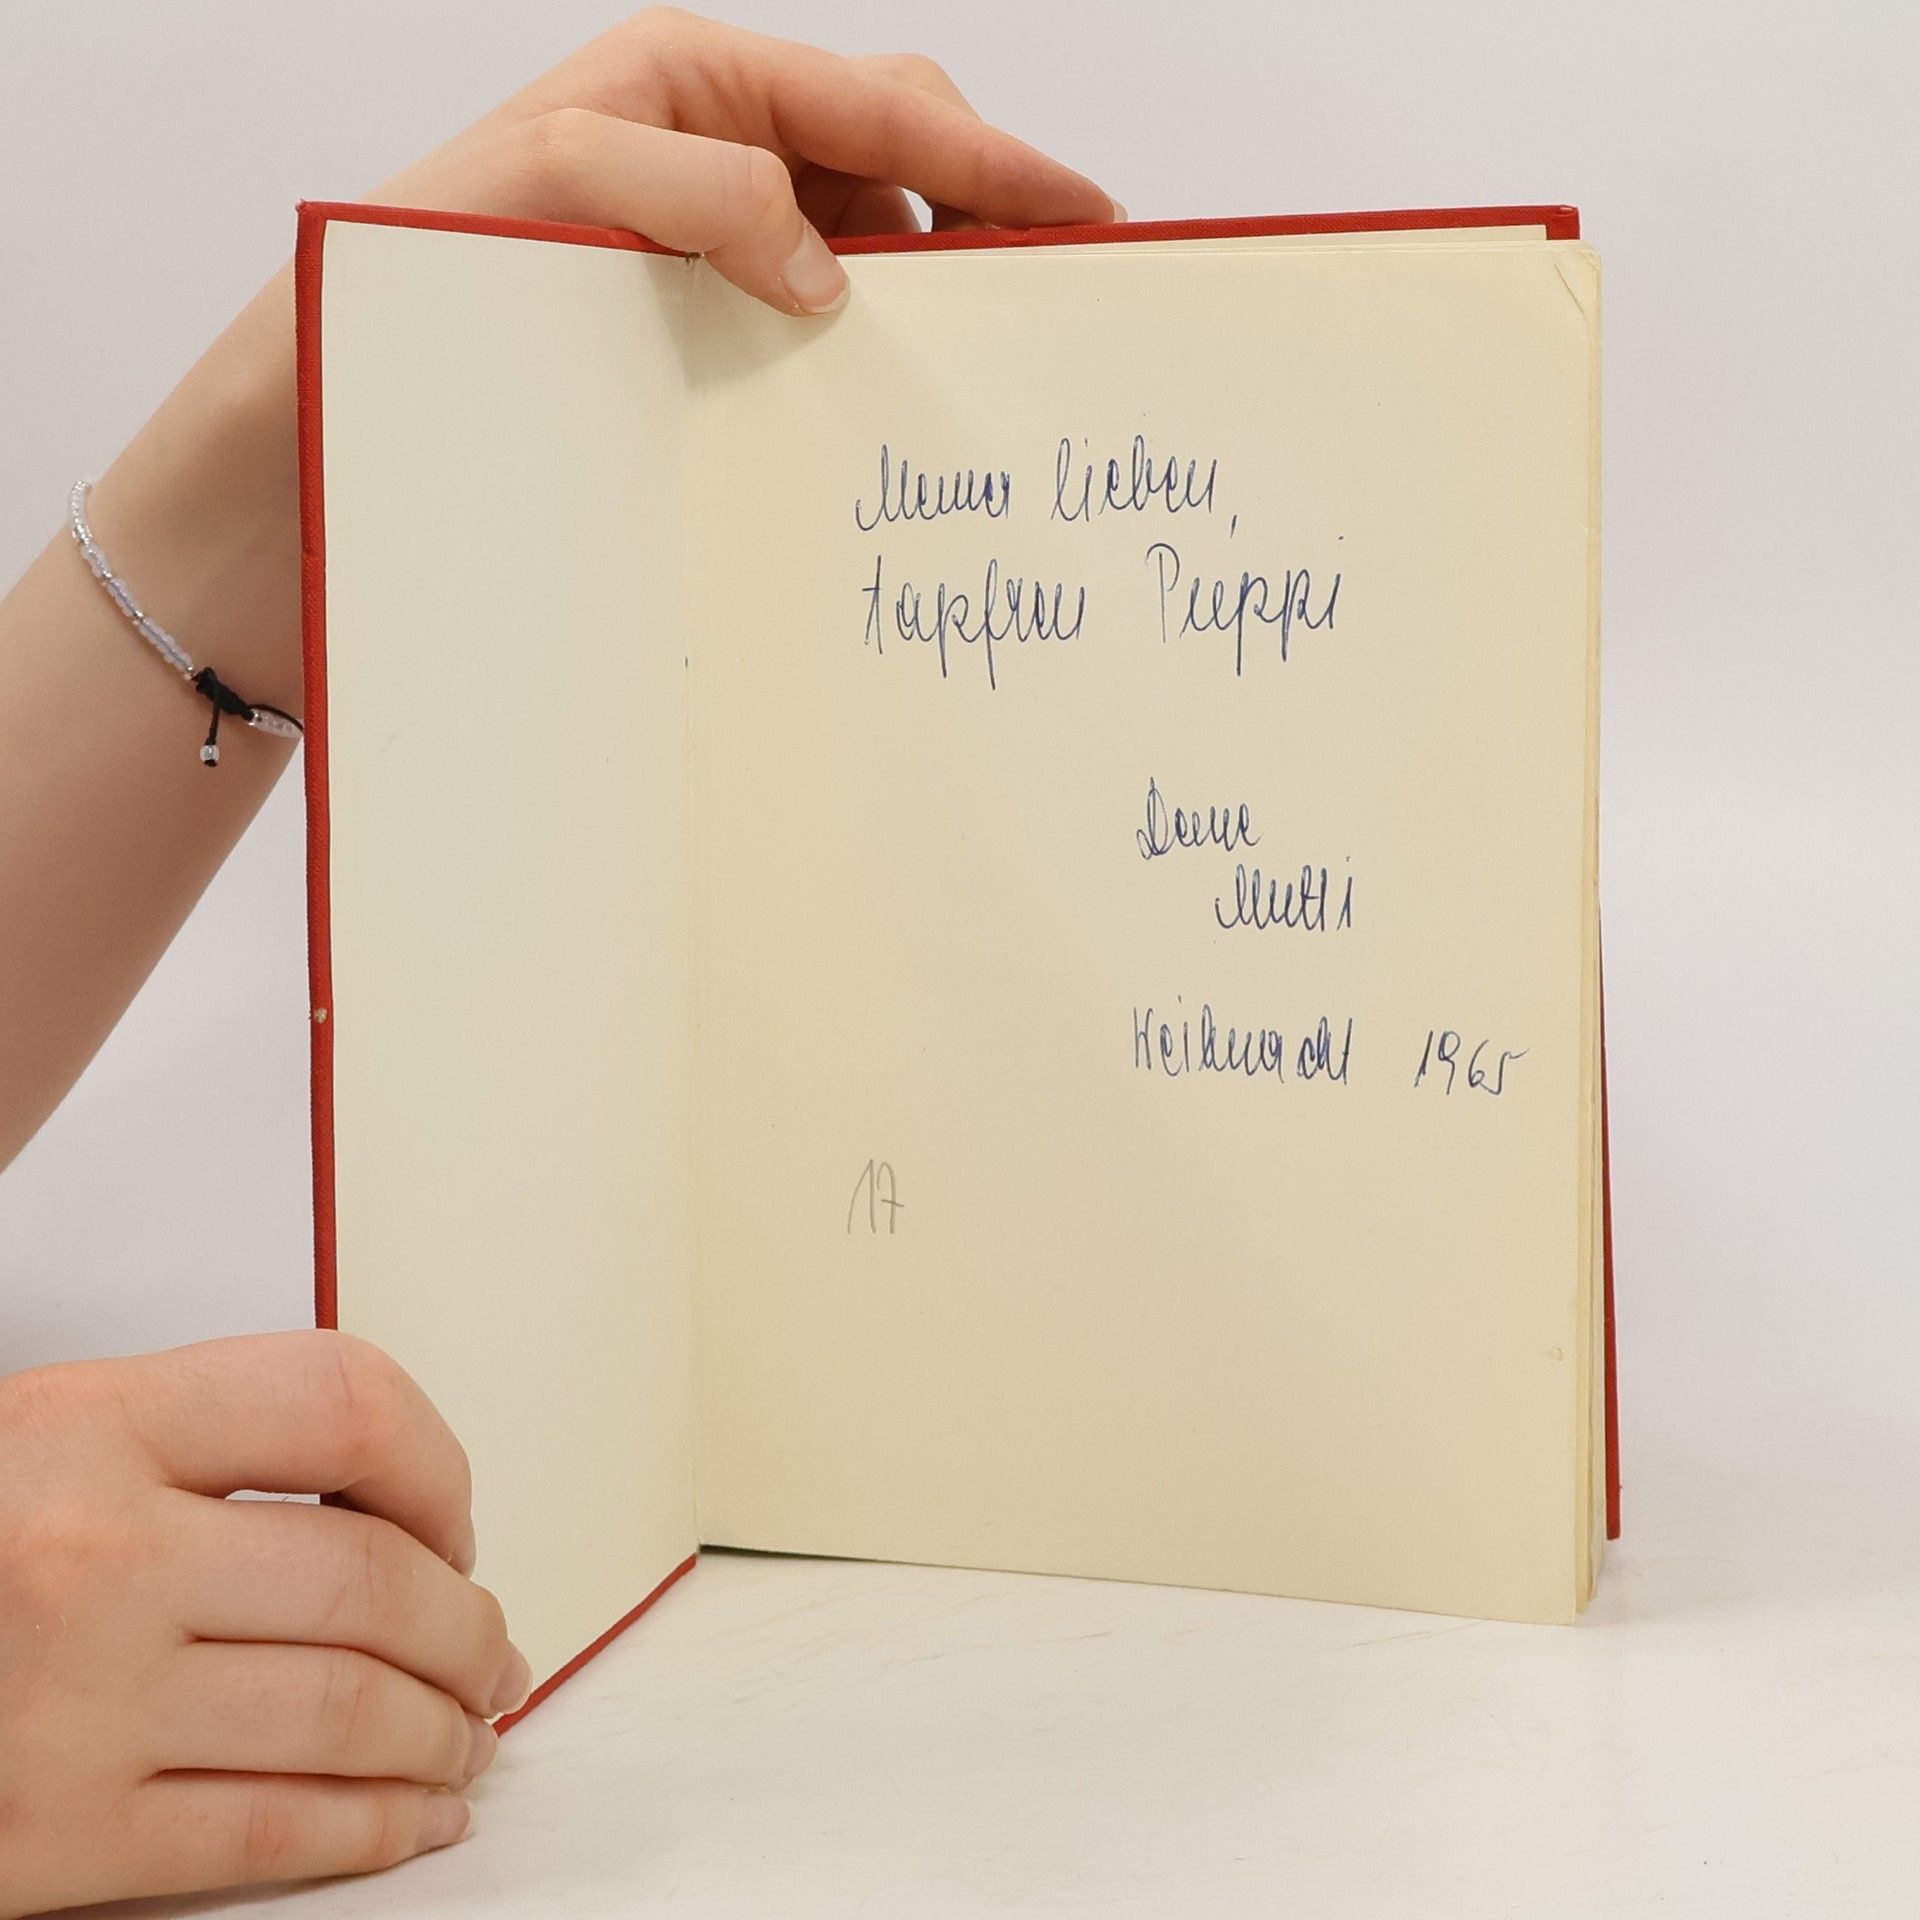 Meiner lieben,
tapfren Puppi
Deine
Mutti
Weihnacht 1965
17